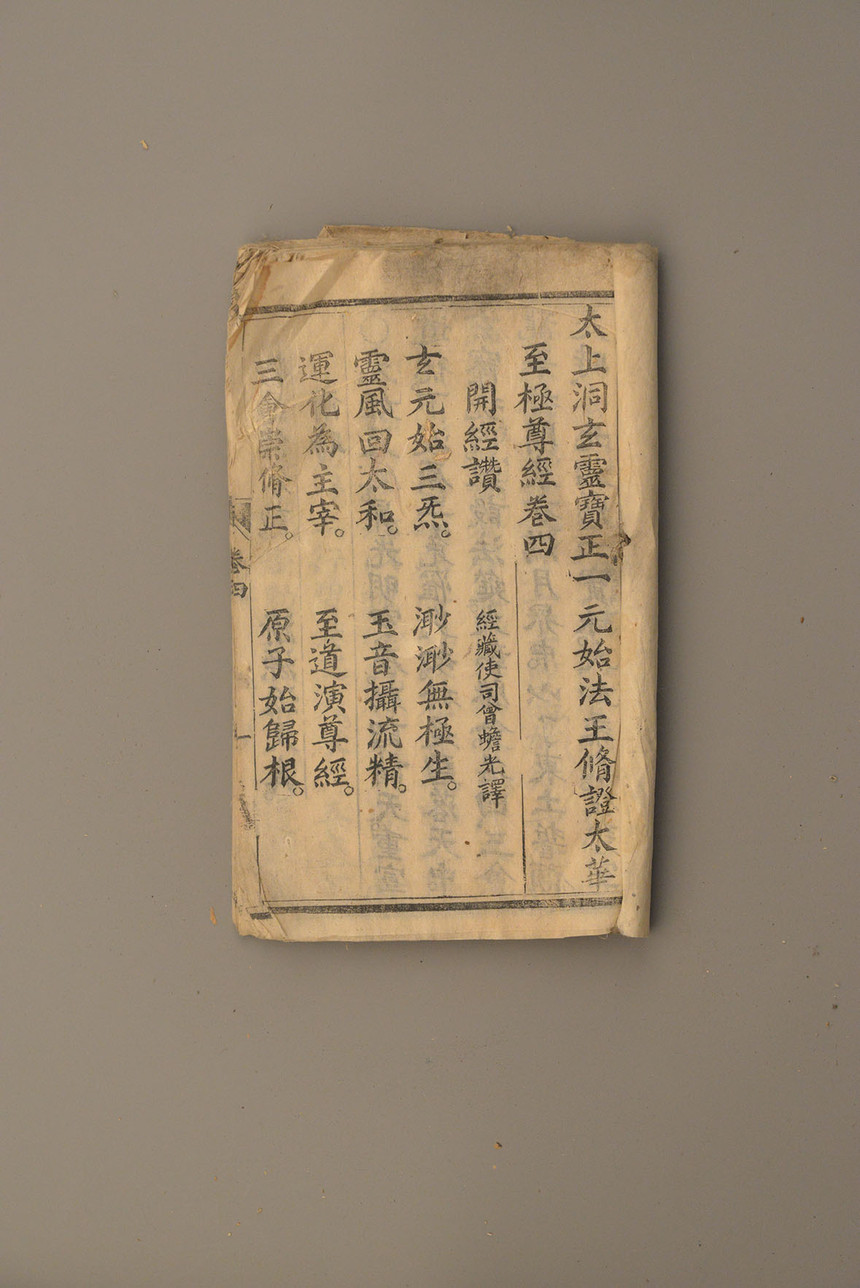 太上洞玄靈寶正一元始法王脩證太華
至極尊經卷四
開經讚　經藏使司曾蟾光譯
玄元始三炁。渺渺無極生。
靈風回太和。玉音攝流精。
運化為主宰。至道演尊經。
三會崇脩正。原子始歸根。
卷四